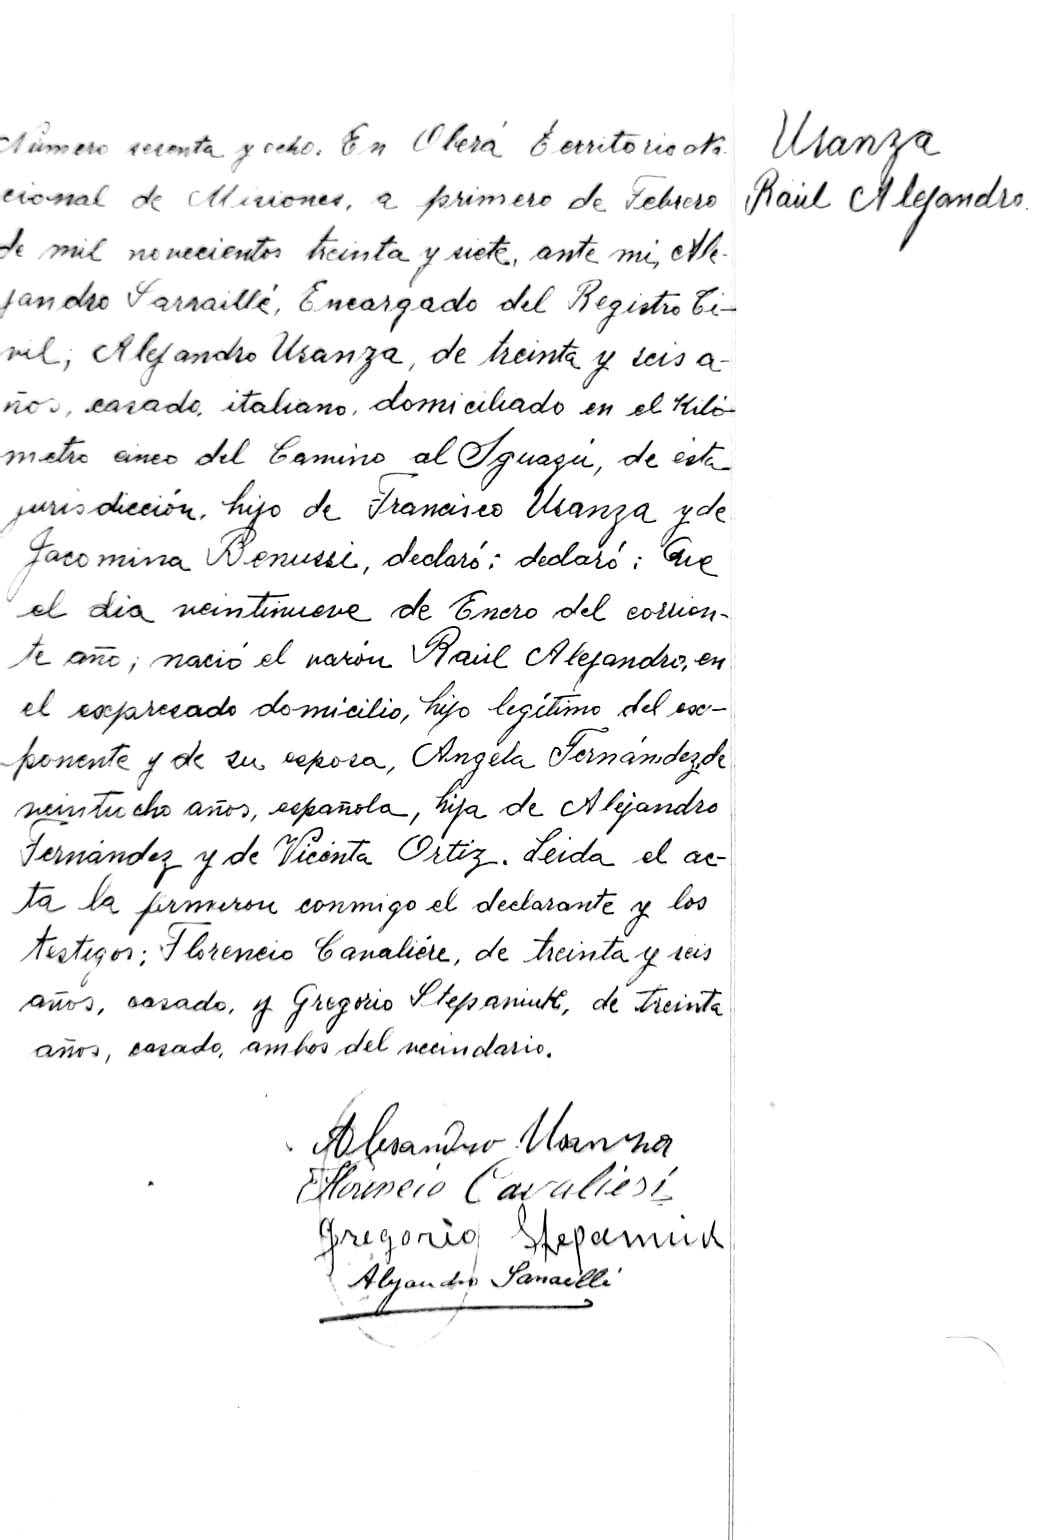 Número sesenta y ocho. En Oberá Territorio Na-
cional de Misiones, a primero de Febrero
de mil novecientos treinta y siete, ante mi, Ale-
jandro Sarraillé, Encargado del Registro Ci-
vil; Alejandro Usanza, de treinta y seis a-
ños, casado, italiano, domiciliado en el Kiló-
metro cinco del Camino al Iguazú, de ésta
jurisdicción, hijo de Francisco Usanza y de
Jacomina Benussi, declaró: declaró: Que
el dia veintinueve de Enero del corrien-
te año; nació el varón Raúl Alejandro, en
el expresado domicilio, hijo legítimo del ex-
ponente y de su esposa, Angela Fernández, de
veintiocho años, española, hija de Alejandro
Fernández y de Vicenta Ortiz. Leida el ac-
ta la firmaron conmigo el declarante y los
testigos; Florencio Cavaliére, de treinta y seis
años, casado, y Gregorio Stepaniuk, de treinta
años, casado, ambos del vecindario.
Alesandro Usanza
Florencio Cavalieri
Gregorio Stepaniuk
Alejandro Sarraillé
Usanza
Raúl Alejandro.